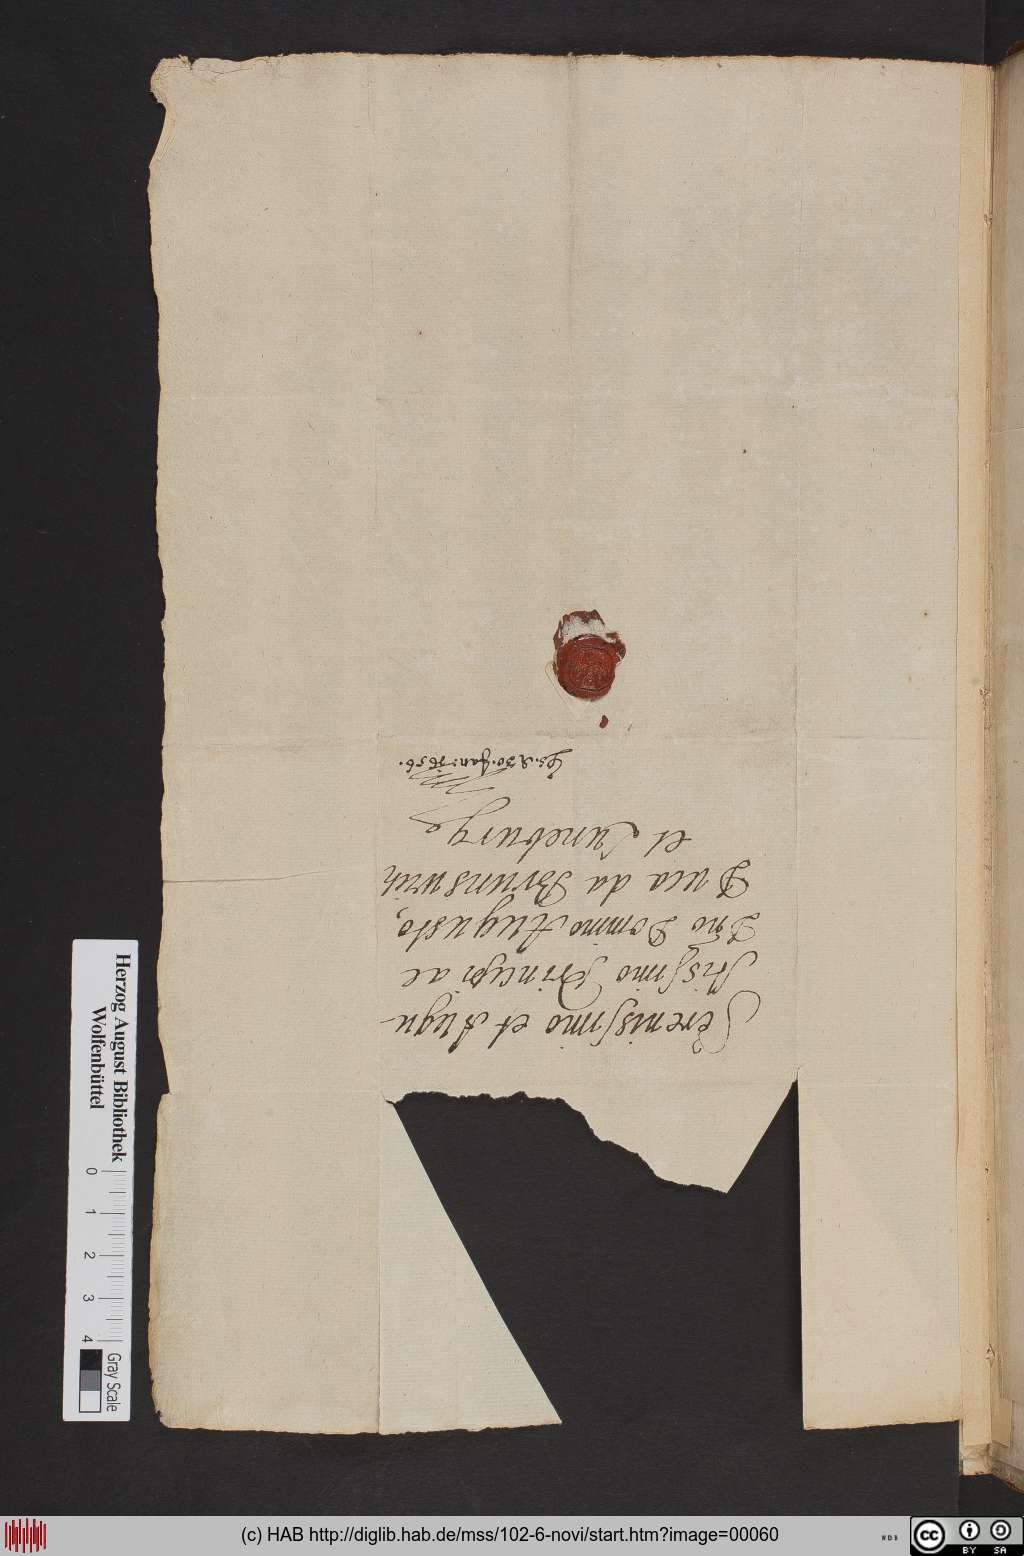 Serenissimo et Augu-
stissimo Principi ac
Dno Domino Augusto,
Duci da Brunswich
et Luneburg
30. Jan: 1656.
Herzog August Bibliothek
Wolfenbüttel
0 1 2 3 4
Gray Scale
(c) HAB http://diglib.hab.de/mss/102-6-novi/start.htm?image=00060
WDB
cc BY SA